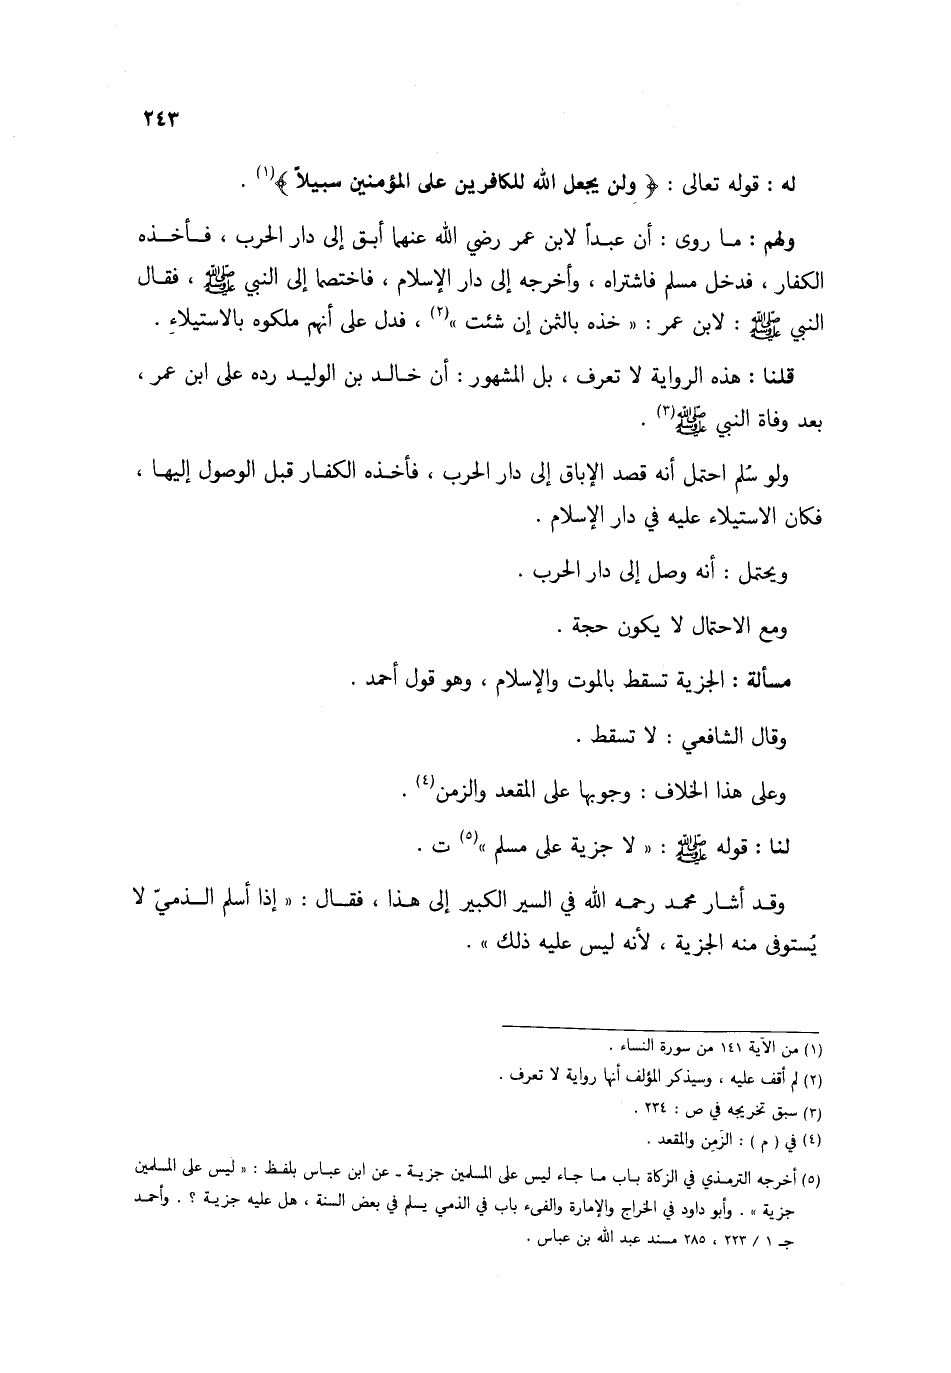 ٢٤٣
له : قوله تعالى : ﴿ ولن يجعل الله للكافرين على المؤمنين سبيلاً ﴾(١) .
ولهم : ما روى : أن عبداً لابن عمر رضي الله عنهما أبق إلى دار الحرب ، فأخذه
الكفار ، فدخل مسلم فاشتراه ، وأخرجه إلى دار الإسلام ، فاختصما إلى النبي ﷺ ، فقال
النبي ﷺ : لابن عمر : « خذه بالثمن إن شئت »(٢) ، فدل على أنهم ملكوه بالاستيلاء .
قلنا : هذه الرواية لا تعرف ، بل المشهور : أن خالد بن الوليد رده على ابن عمر ،
بعد وفاة النبي ﷺ(٣) .
ولو سُلم احتمل أنه قصد الإباق إلى دار الحرب ، فأخذه الكفار قبل الوصول إليها ،
فكان الاستيلاء عليه في دار الإسلام .
ويحتمل : أنه وصل إلى دار الحرب .
ومع الاحتمال لا يكون حجة .
مسألة : الجزية تسقط بالموت والإسلام ، وهو قول أحمد .
وقال الشافعي : لا تسقط .
وعلى هذا الخلاف : وجوبها على المقعد والزمن(٤) .
لنا : قوله ﷺ : « لا جزية على مسلم »(٥) ت .
وقد أشار محمد رحمه الله في السير الكبير إلى هذا ، فقال : « إذا أسلم الذميّ لا
يُستوفى منه الجزية ، لأنه ليس عليه ذلك » .
(١) من الآية ١٤١ من سورة النساء .
(٢) لم أقف عليه ، وسيذكر المؤلف أنها رواية لا تعرف .
(٣) سبق تخريجه في ص : ٢٣٤ .
(٤) في ( م ) : الزَمِن والمقعد .
(٥) أخرجه الترمذي في الزكاة باب ما جاء ليس على المسلمين جزية ـ عن ابن عباس بلفظ : « ليس على المسلمين
جزية » . وأبو داود في الخراج والإمارة والفىء باب في الذمي يسلم في بعض السنة ، هل عليه جزية ؟ . وأحمد
جـ ١ / ٢٢٣ ، ٢٨٥ مسند عبد الله بن عباس .